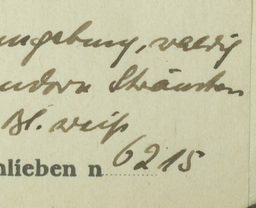 Umgebung, waldig
andern Sträuchern
Bl. weiß
hlieben n 6215